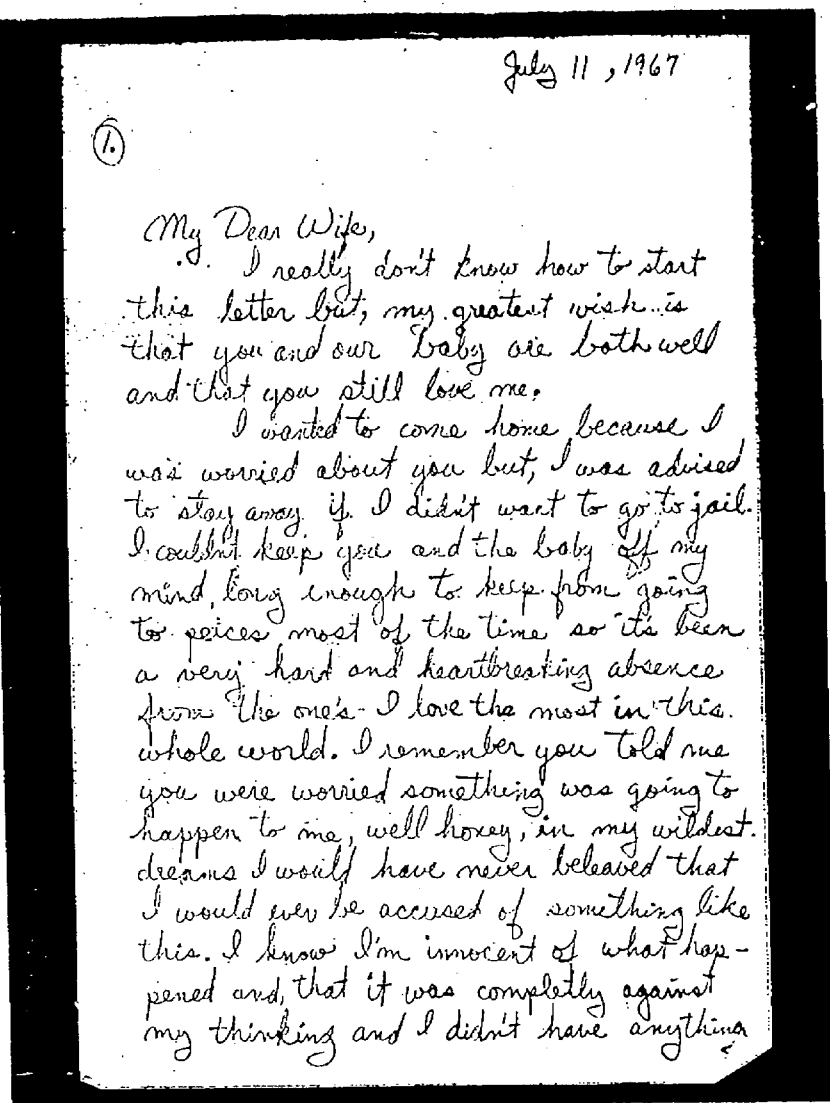 July 11, 1967
1.
My Dear Wife,
I really don't know how to start
this letter but, my greatest wish is
that you and our baby are both well
and that you still love me.
I wanted to come home because I
was worried about you but, I was advised
to stay away if I didn't want to go to jail.
I couldn't keep you and the baby off my
mind, long enough to keep from going
to peices most of the time so it's been
a very hard and heartbreaking absence
from the one's I love the most in this
whole world. I remember you told me
you were worried something was going to
happen to me, well honey, in my wildest
dreams I would have never beleaved that
I would ever be accused of something like
this. I know I'm innocent of what hap-
pened and, that it was completly against
my thinking and I didn't have anything